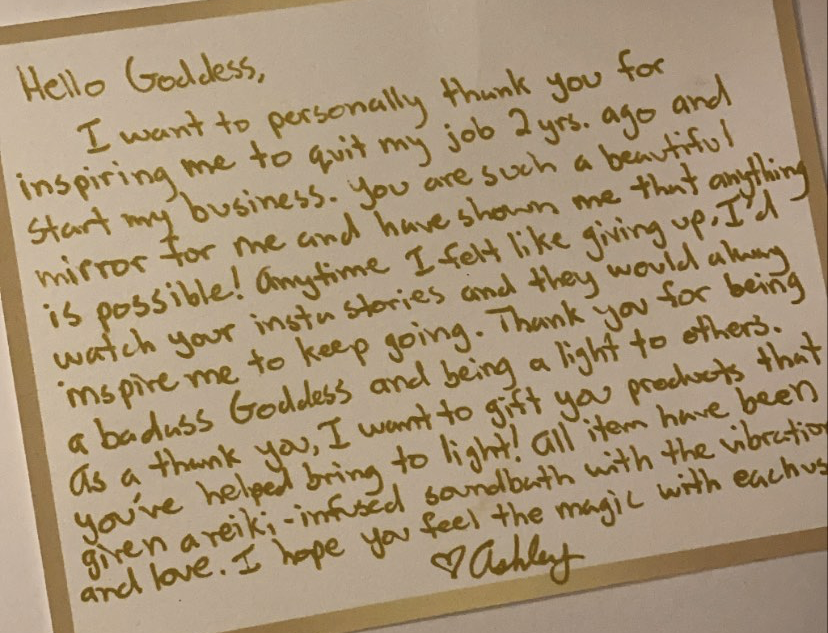 Hello Goddess,
I want to personally thank you for
inspiring me to quit my job 2 yrs. ago and
start my business. You are such a beautiful
mirror for me and have shown me that anything
is possible! Anytime I felt like giving up, I'd
watch your insta stories and they would alway
inspire me to keep going. Thank you for being
a badass Goddess and being a light to others.
As a thank you, I want to gift you products that
you've helped bring to light! All item have been
given a reiki-infused soundbath with the vibration
and love. I hope you feel the magic with each us
♡ Ashley